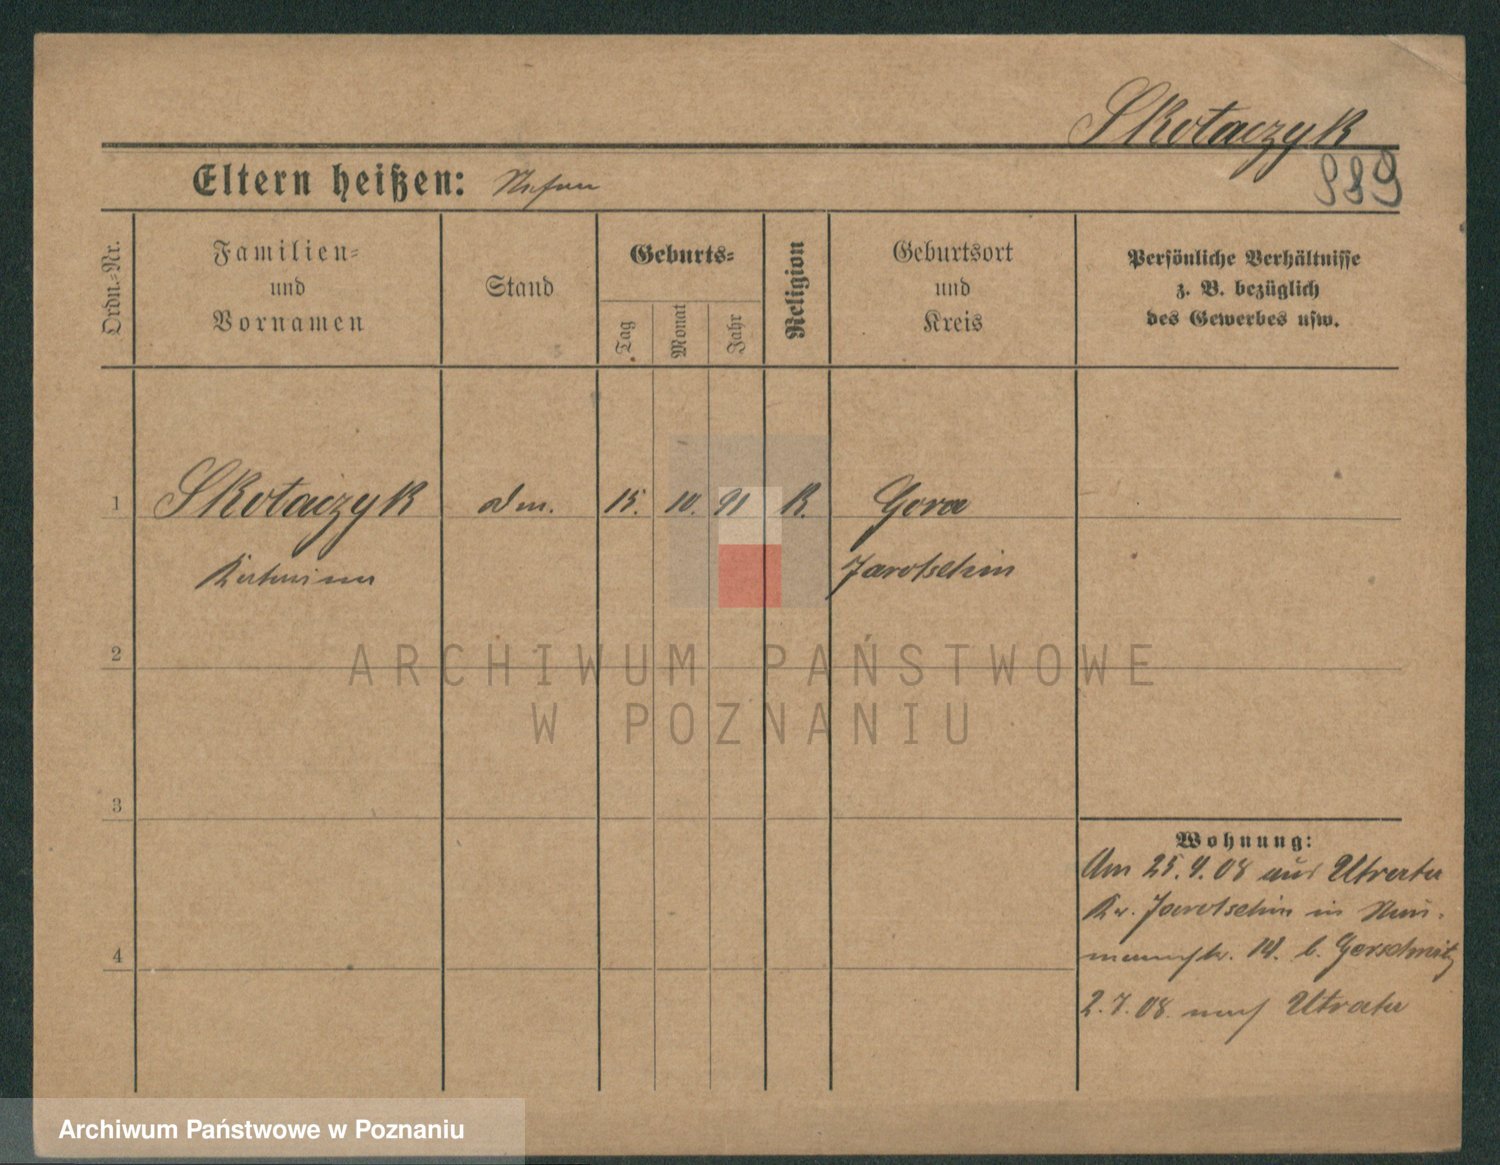 Skotarzyk
889
Eltern heißen:
Ordn.=Nr.
Familien=
und
Vornamen
Stand
Geburts=
Tag
Monat
Jahr
Religion
Geburtsort
und
Kreis
Persönliche Verhältnisse
z. B. bezüglich
des Gewerbes usw.
1 Skotarzyk 15. 10. 91 K. Gora
Katarina Jarotschin
2
ARCHIWUM PAŃSTWOWE
W POZNANIU
3
Wohnung:
Am 25.4.08 aus Utrata
Kr. Jarotschin in Neu-
mannstr. 14. b. Gerschwitz
4
2.7.08. nach Utrata
Archiwum Państwowe w Poznaniu